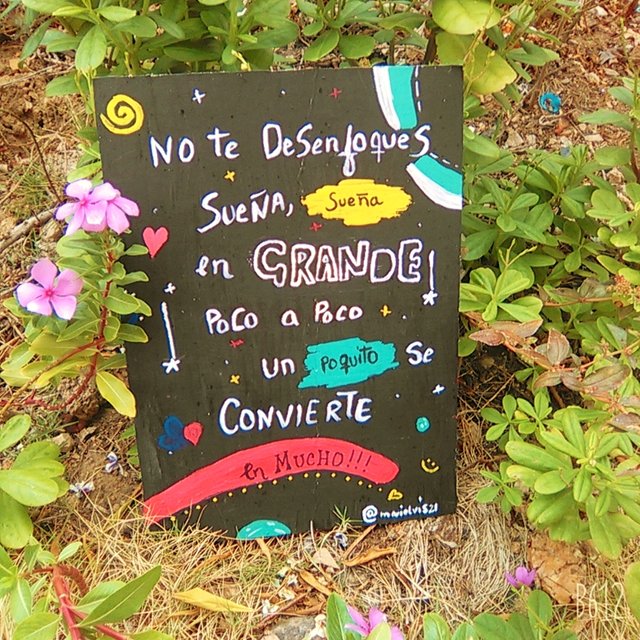 No te Desenfoques
Sueña, Sueña
en GRANDE!
Poco a Poco
un Poquito Se
CONVIERTE
en MUCHO!!!
@marielvis21
B612